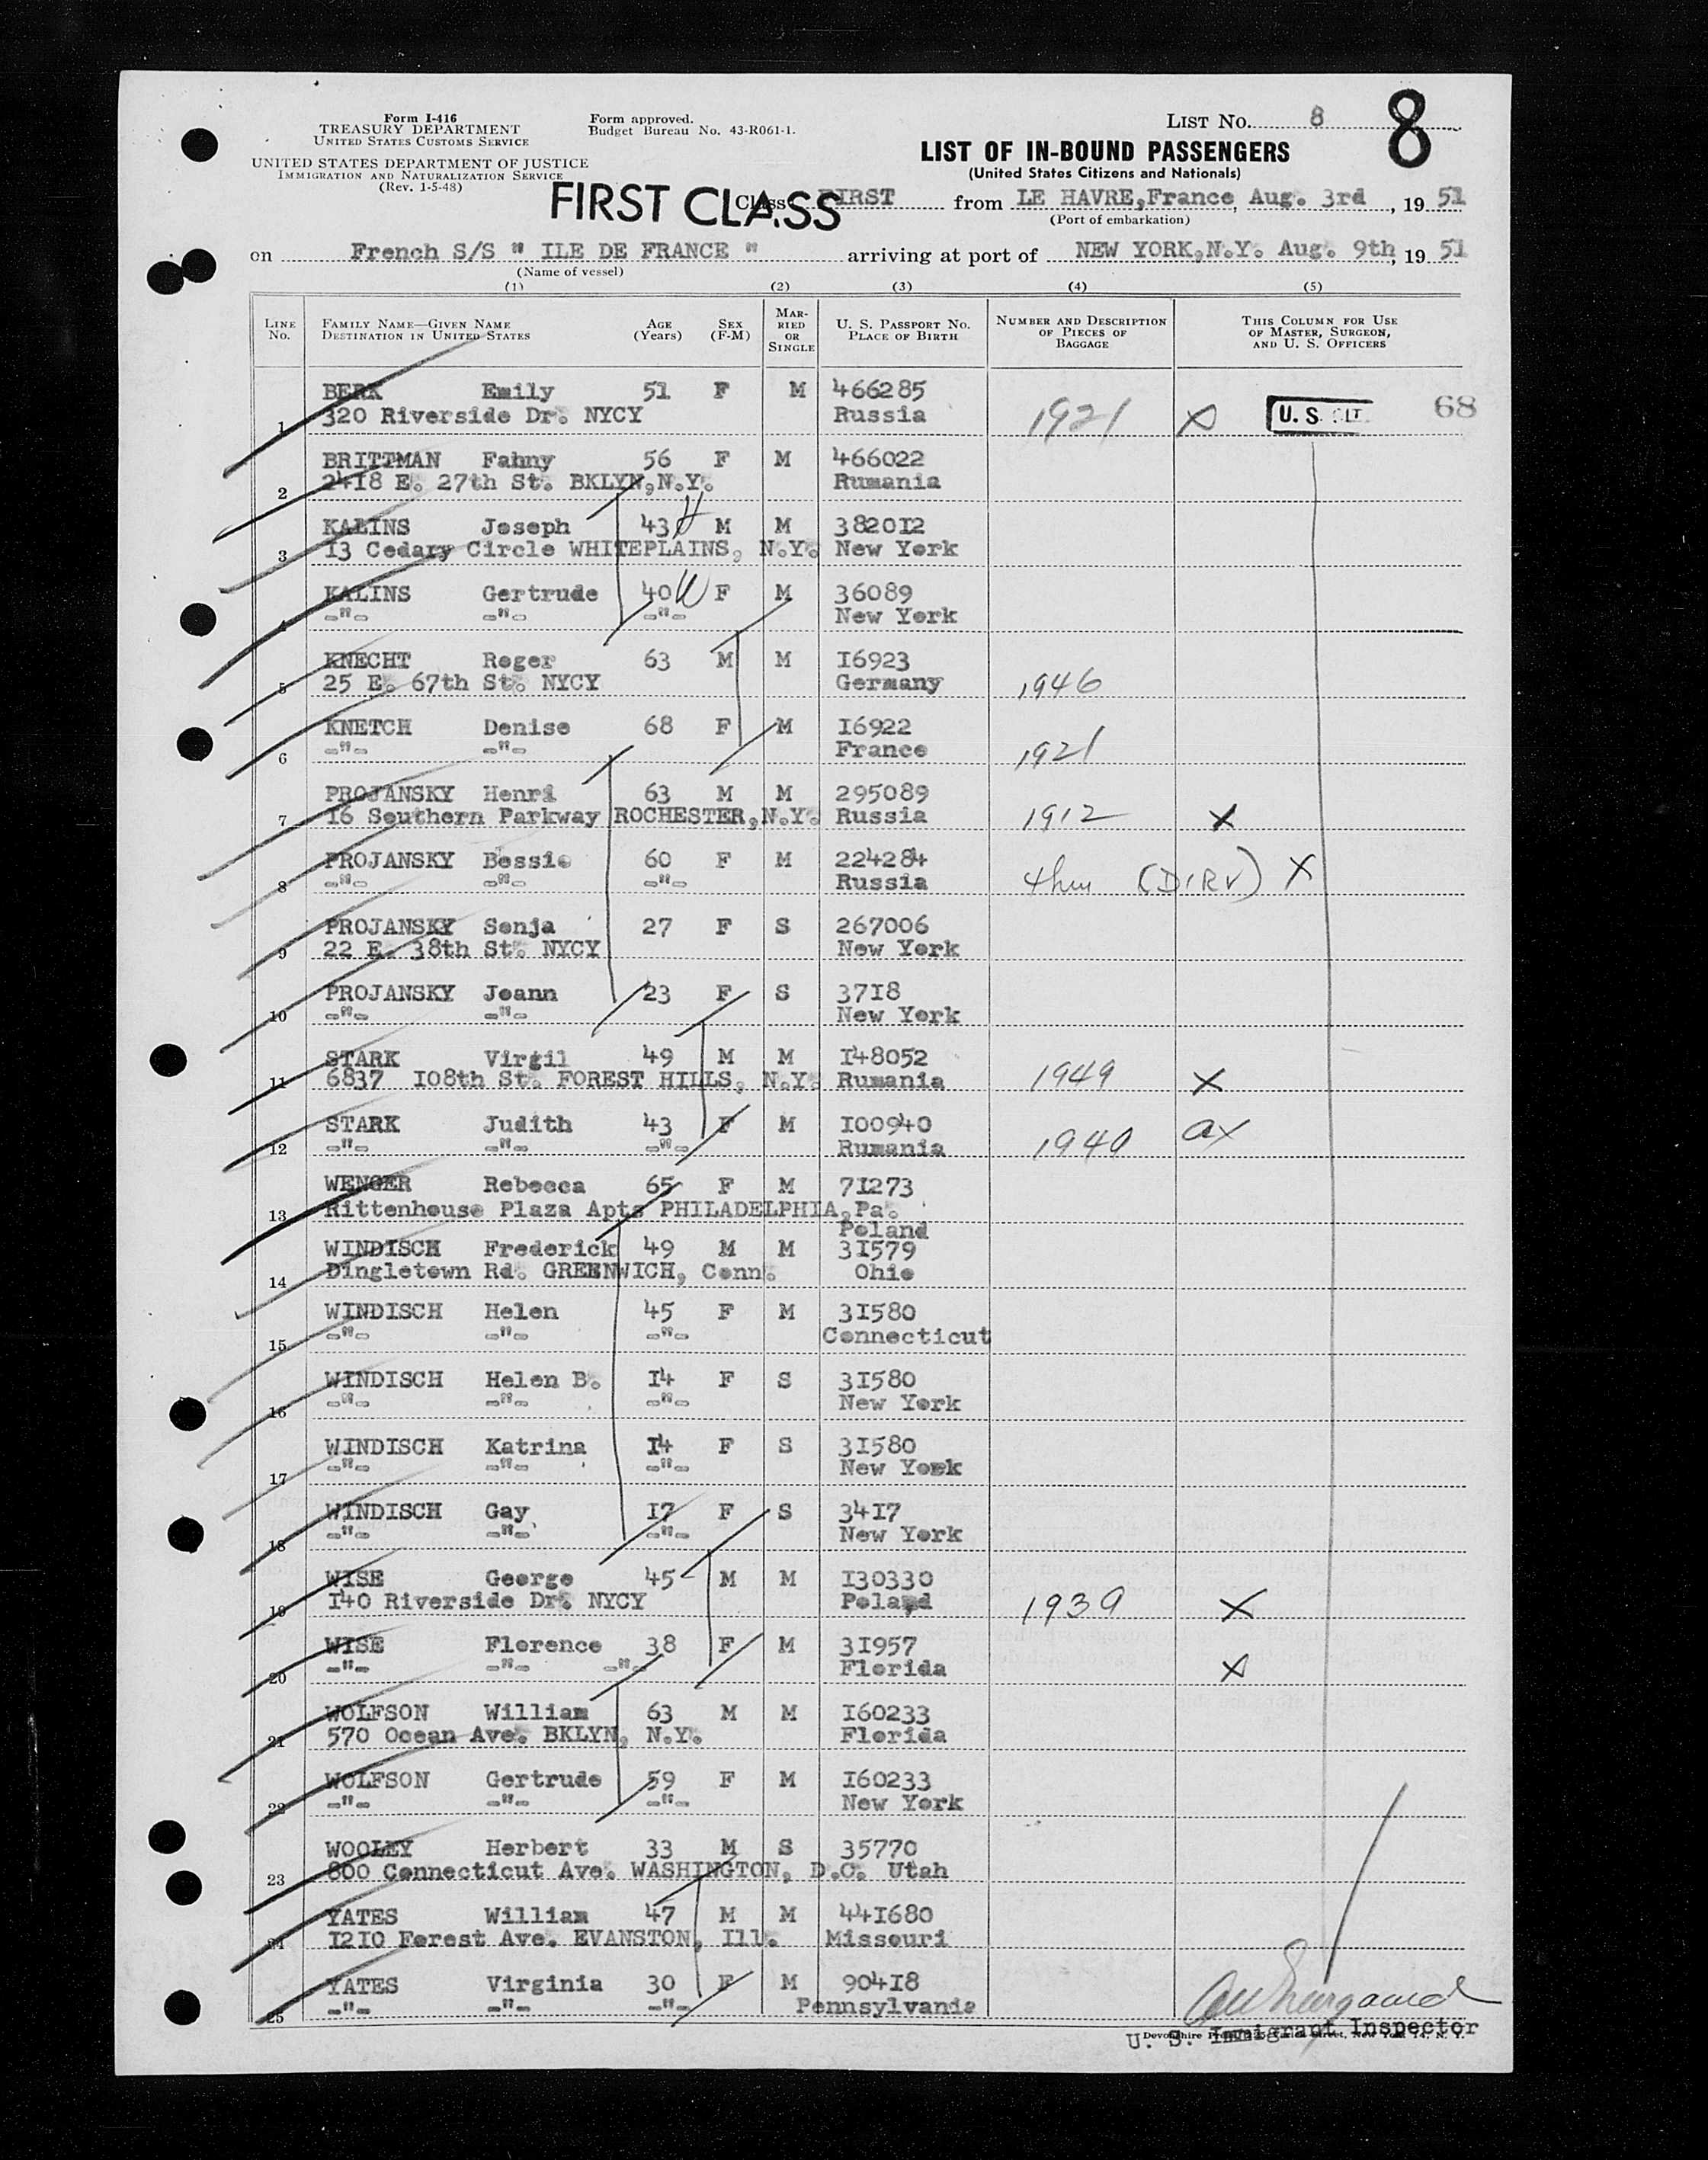 Form I-416
TREASURY DEPARTMENT
UNITED STATES CUSTOMS SERVICE
UNITED STATES DEPARTMENT OF JUSTICE
IMMIGRATION AND NATURALIZATION SERVICE
(Rev. 1-5-48)
Form approved.
Budget Bureau No. 43-R061-1.
LIST NO. 8
8
LIST OF IN-BOUND PASSENGERS
(United States Citizens and Nationals)
FIRST CLASS
Class FIRST from LE HAVRE,France, Aug. 3rd, 19 51
(Port of embarkation)
on French S/S " ILE DE FRANCE " arriving at port of NEW YORK,N.Y. Aug. 9th, 19 51
(Name of vessel)
(1) (2) (3) (4) (5)
LINE NO.
FAMILY NAME—GIVEN NAME
DESTINATION IN UNITED STATES
AGE (Years)
SEX (F-M)
MARRIED OR SINGLE
U. S. PASSPORT NO.
PLACE OF BIRTH
NUMBER AND DESCRIPTION OF PIECES OF BAGGAGE
THIS COLUMN FOR USE OF MASTER, SURGEON, AND U. S. OFFICERS
BERK Emily 51 F M 466285
1 320 Riverside Dr. NYCY Russia 1921 X U. S. CIT. 68
BRITTMAN Fahny 56 F M 466022
2 2418 E. 27th St. BKLYN,N.Y. Rumania
KALINS Joseph 43 H M M 382012
3 13 Cedary Circle WHITEPLAINS, N.Y. New York
KALINS Gertrude 40 W F M 36089
4 -"- -"- -"- New York
KNECHT Roger 63 M M I6923
5 25 E. 67th St. NYCY Germany 1946
KNETCH Denise 68 F M I6922
6 -"- -"- France 1921
PROJANSKY Henri 63 M M 295089
7 16 Southern Parkway ROCHESTER,N.Y. Russia 1912 X
PROJANSKY Bessie 60 F M 224284
8 -"- -"- -"- Russia (DIRV) X
PROJANSKY Sonja 27 F S 267006
9 22 E. 38th St. NYCY New York
PROJANSKY Joann 23 F S 37I8
10 -"- -"- New York
STARK Virgil 49 M M I48052
11 6837 I08th St. FOREST HILLS, N.Y. Rumania 1949 X
STARK Judith 43 F M I00940
12 -"- -"- -"- Rumania 1940 ax
WENGER Rebecca 65 F M 7I273
13 Rittenhouse Plaza Apts PHILADELPHIA,Pa.
Poland
WINDISCH Frederick 49 M M 3I579
14 Dingletown Rd. GREENWICH, Conn. Ohio
WINDISCH Helen 45 F M 3I580
15 -"- -"- -"- Connecticut
WINDISCH Helen B. I4 F S 3I580
16 -"- -"- -"- New York
WINDISCH Katrina I4 F S 3I580
17 -"- -"- -"- New York
WINDISCH Gay I7 F S 34I7
18 -"- -"- -"- New York
WISE George 45 M M I30330
19 I40 Riverside Dr. NYCY Poland 1939 X
WISE Florence 38 F M 3I957
20 -"- -"- -"- Florida X
WOLFSON William 63 M M I60233
21 570 Ocean Ave. BKLYN, N.Y. Florida
WOLFSON Gertrude 59 F M I60233
22 -"- -"- -"- New York
WOOLEY Herbert 33 M S 35770
23 800 Connecticut Ave. WASHINGTON, D.C. Utah
YATES William 47 M M 44I680
24 I2I0 Forest Ave. EVANSTON, Ill. Missouri
YATES Virginia 30 F M 904I8
25 -"- -"- -"- Pennsylvania
U. S. Immigrant Inspector